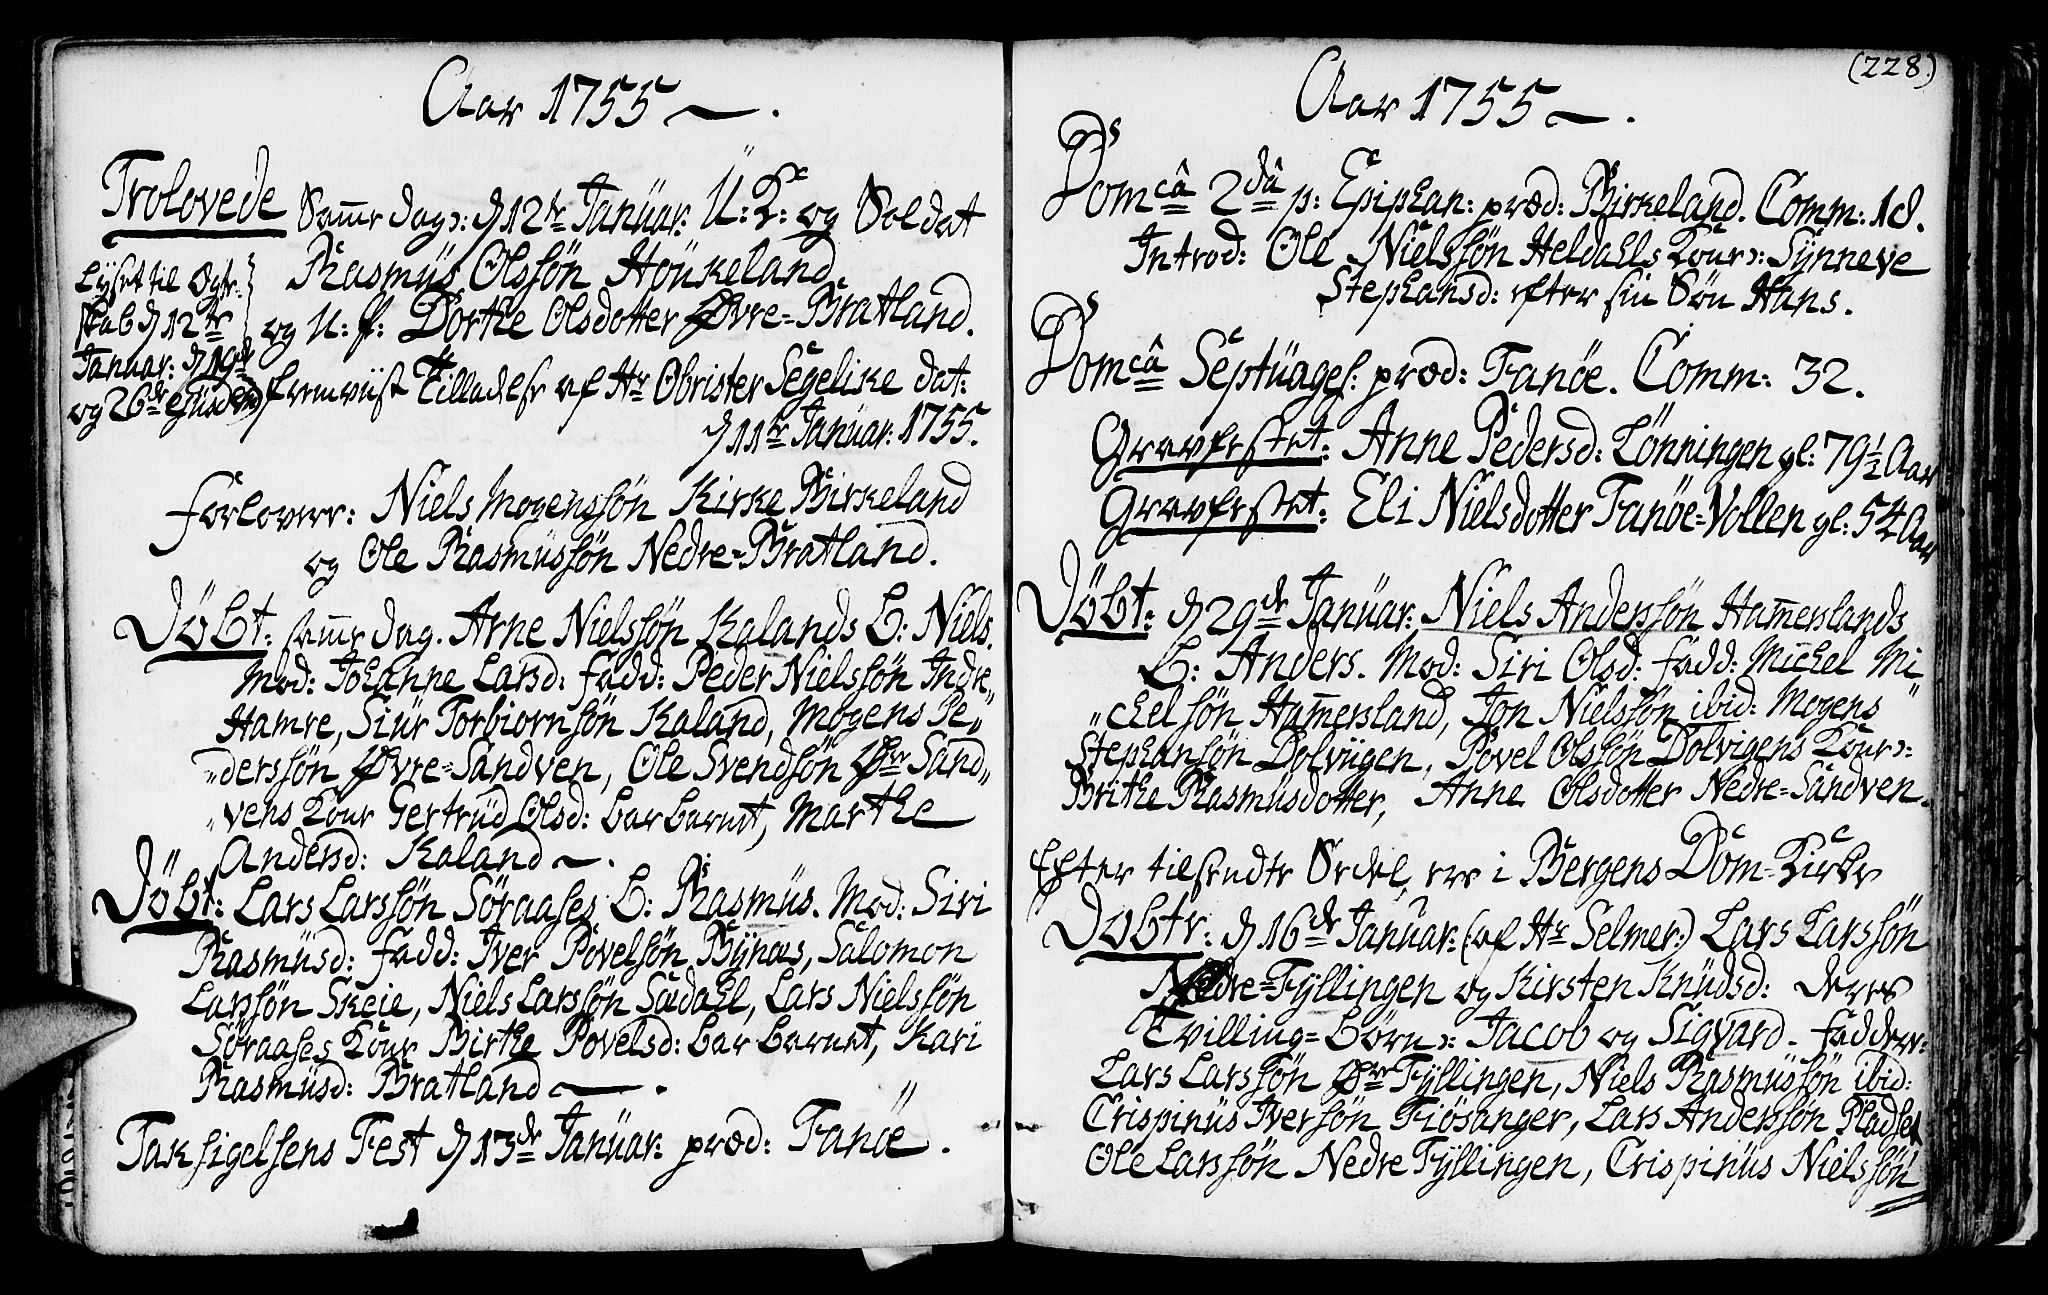 Aar 1755 ~ .
Trolovede Samme Dag: d 12te Januar: U: K: og Soldat
Rasmus Olssøn Houkeland
og U: P: Dorthe Olsdotter Øvre=Bratland.
Lyset til Ægte-
skab d 12te
Januar: d 19de
og 26de ejusdem
fremviist Tilladelse af Hr Obrister Segelike dat:
d 11te Januar: 1755.
Forlovere: Niels Mogenssøn Kirke Birkeland
og Ole Rasmussøn Nedre=Bratland.
Döbt: samme Dag. Arne Nielssøn Kalands B: Niels.
Mod: Johanne Larsd: Fadd: Peder Nielssøn Indre„
Hamre, Siur Torbiornsøn Kaland, Mogens Pe„
„derssøn Øvre=Sandven, Ole Svendsøn Øvre Sand„
„vens Kone Gertrud Olsd: bar barnet, Marthe
Andersd: Kaland ~ .
Döbt: Lars Larssøn Söraases B: Rasmus. Mod: Siri
Rasmusd: Fadd: Iver Povelsøn Bÿnæs, Salomon
Larssøn Skeie, Niels Larssøn Sædahl, Lars Nielssøn
Söraases Kone Birthe Povelsd: bar barnet, Kari
Rasmusd: Bratland ~ .
Taksigelsens Fest d 13de Januar: præd: Fanöe .
(228)
Aar 1755 ~ .
Domcâ 2dâ p: Epiphan: præd: Birkeland. Comm: 18.
Introd: Ole Nielssøn Heldahls Kone: Synneve
Stephansd: efter sin Søn Hans.
Domcâ Septuages: præd: Fanöe. Comm: 32.
Gravfestet: Anne Pedersd: Lönningen gl: 79 1/2 Aar
Gravfestet: Eli Nielsdotter Fanöe=Vollen gl: 54 Aar
Döbt: d 29de Januar: Niels Anderssøn Hamerslands
B: Anders. Mod: Siri Olsd: Fadd: Michel Mi„
„chelsøn Hamersland, Jon Nielssøn ibid: Mogens
Stephansøn Dolviigen, Povel Olssøn Dolvigens Kone:
Brithe Rasmusdotter, Anne Olsdotter Nedre=Sandven.
Efter tilsendte Sedel, ere i Bergens Dom=Kirke
Döbte: d 16de Januar: (af Hr Selmer:) Lars Larssøn
Nedre=Fyllingen og Kirsten Knudsd: deres
Tvilling=Börn: Jacob og Sigvard. Faddere:
Lars Larssøn Øvre Fyllingen, Niels Rasmussøn ibid:
Crispinus Iversøn Fiösanger, Lars Anderssøn Pladsen
Ole Larssøn Nedre Fyllingen, Crispinus Nielssøn